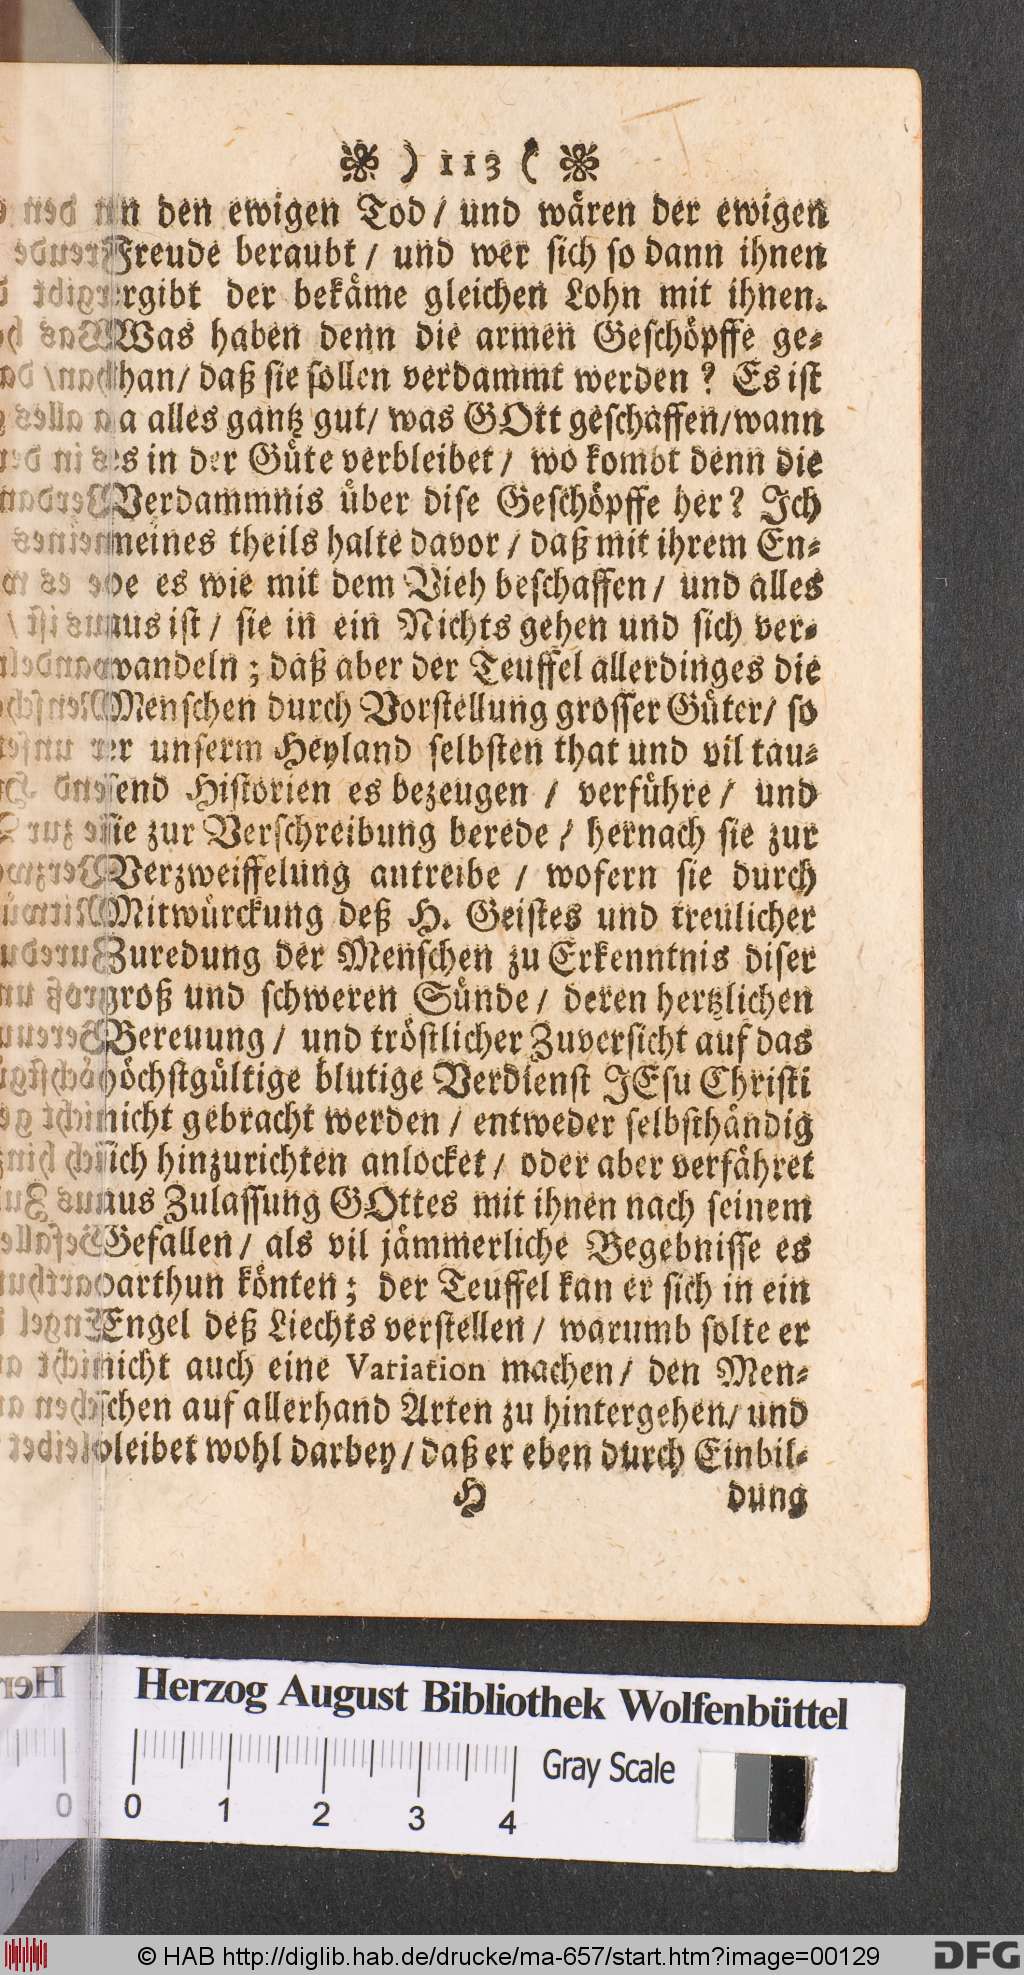 ❀ ) 113 ( ❀
in den ewigen Tod / und wären der ewigen
Freude beraubt / und wer sich so dann ihnen
ergibt der bekäme gleichen Lohn mit ihnen.
Was haben denn die armen Geschöpffe ge-
than / daß sie sollen verdammt werden? Es ist
ja alles gantz gut / was GOtt geschaffen / wann
es in der Güte verbleibet / wo kombt denn die
Verdammnis über dise Geschöpffe her? Ich
meines theils halte davor / daß mit ihrem En-
de es wie mit dem Vieh beschaffen / und alles
aus ist / sie in ein Nichts gehen und sich ver-
wandeln; daß aber der Teuffel allerdinges die
Menschen durch Vorstellung grosser Güter / so
er unserm Heyland selbsten that und vil tau-
send Historien es bezeugen / verführe / und
sie zur Verschreibung berede / hernach sie zur
Verzweiffelung antreibe / wofern sie durch
Mitwürckung deß H. Geistes und treulicher
Zuredung der Menschen zu Erkenntnis diser
groß und schweren Sünde / deren hertzlichen
Bereuung / und tröstlicher Zuversicht auf das
höchstgültige blutige Verdienst JEsu Christi
nicht gebracht werden / entweder selbsthändig
sich hinzurichten anlocket / oder aber verfähret
aus Zulassung GOttes mit ihnen nach seinem
Gefallen / als vil jämmerliche Begebnisse es
darthun könten; der Teuffel kan er sich in ein
Engel deß Liechts verstellen / warumb solte er
nicht auch eine Variation machen / den Men-
schen auf allerhand Arten zu hintergehen / und
bleibet wohl darbey / daß er eben durch Einbil-
H dung
Herzog August Bibliothek Wolfenbüttel
0 1 2 3 4 Gray Scale
© HAB http://diglib.hab.de/drucke/ma-657/start.htm?image=00129 DFG